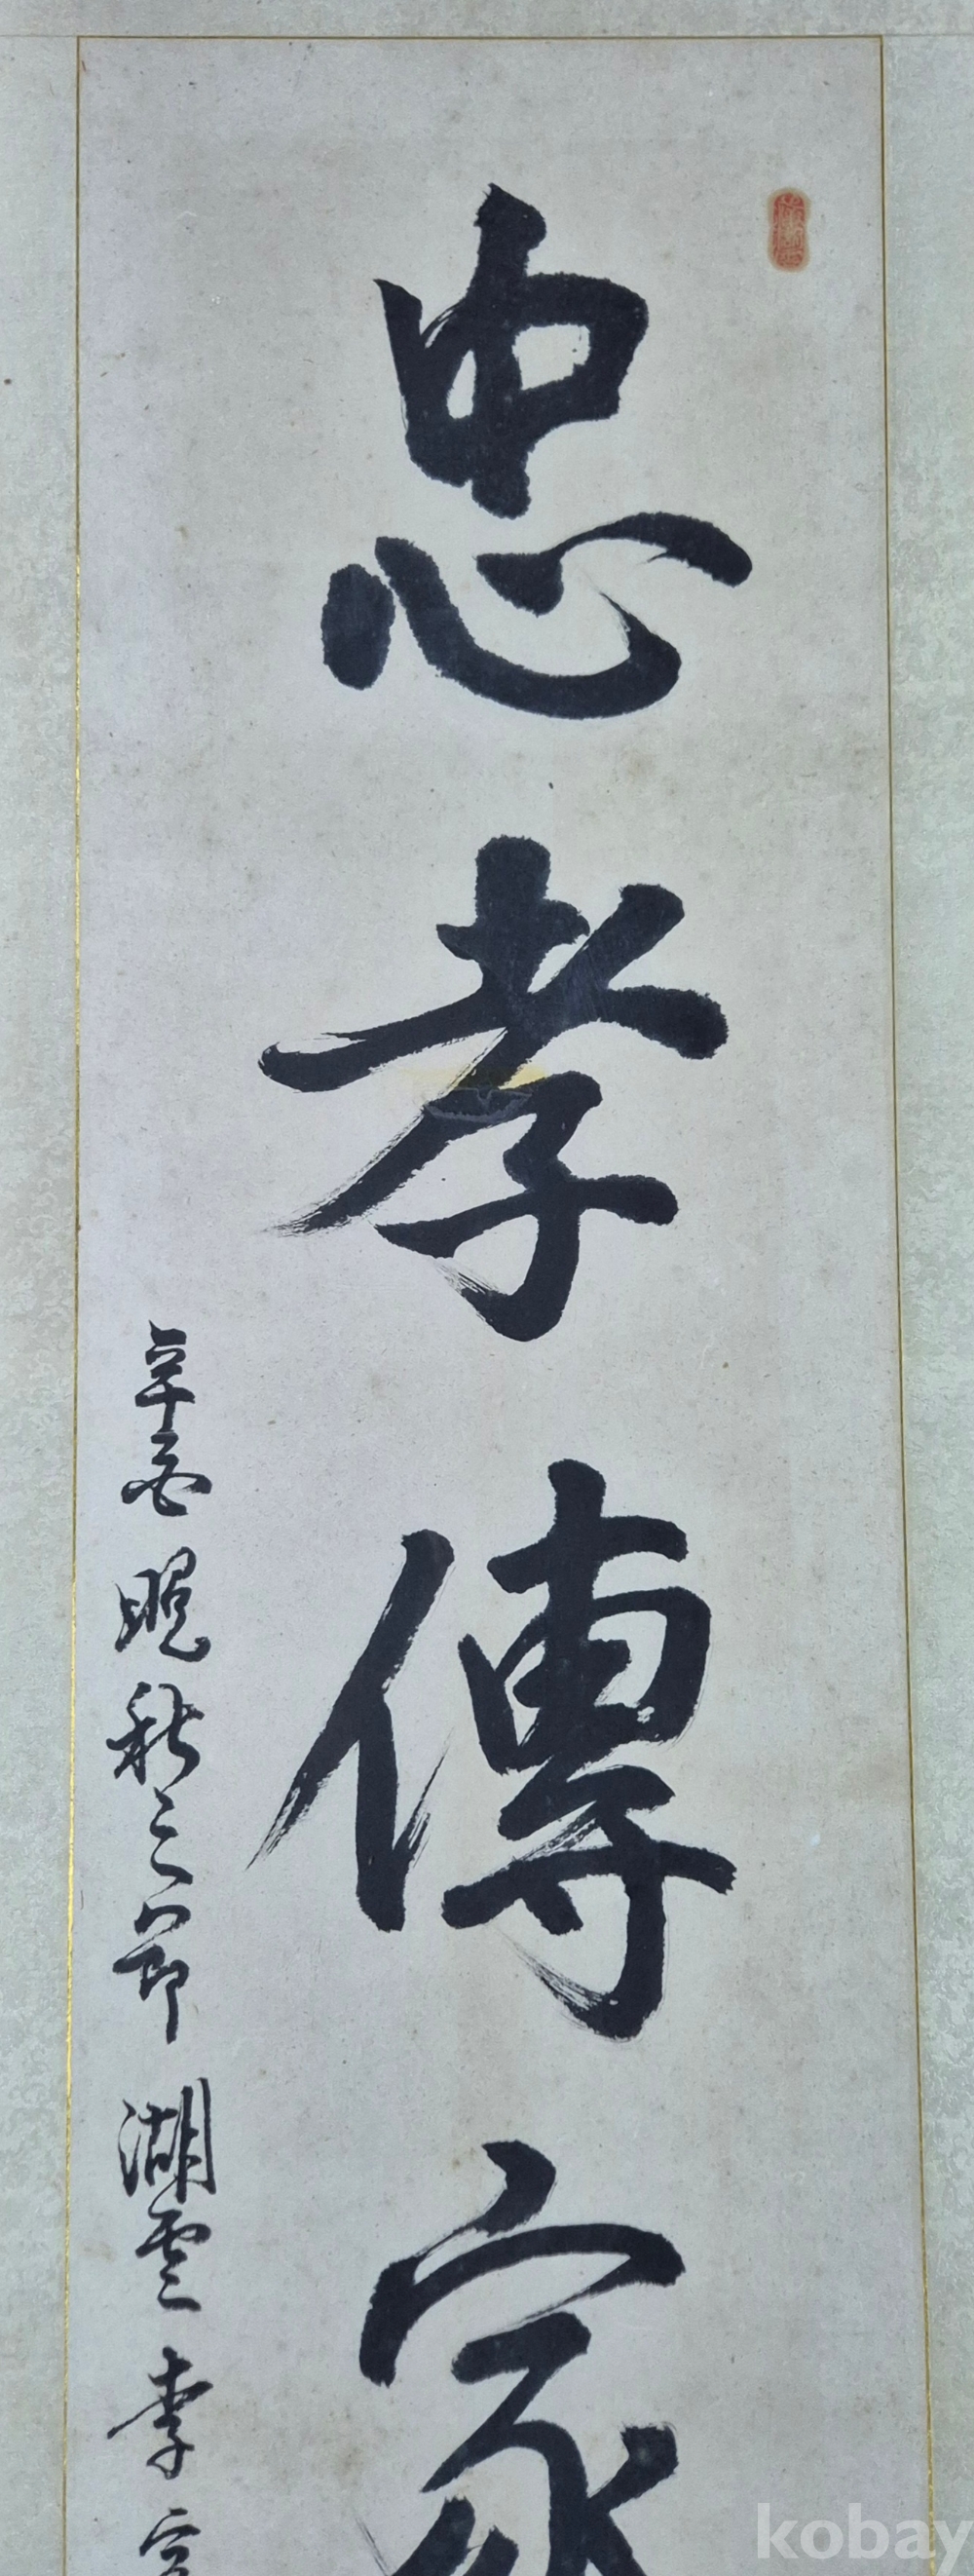 忠孝傳家
辛酉 晚秋之節 湖雲 李
kobay